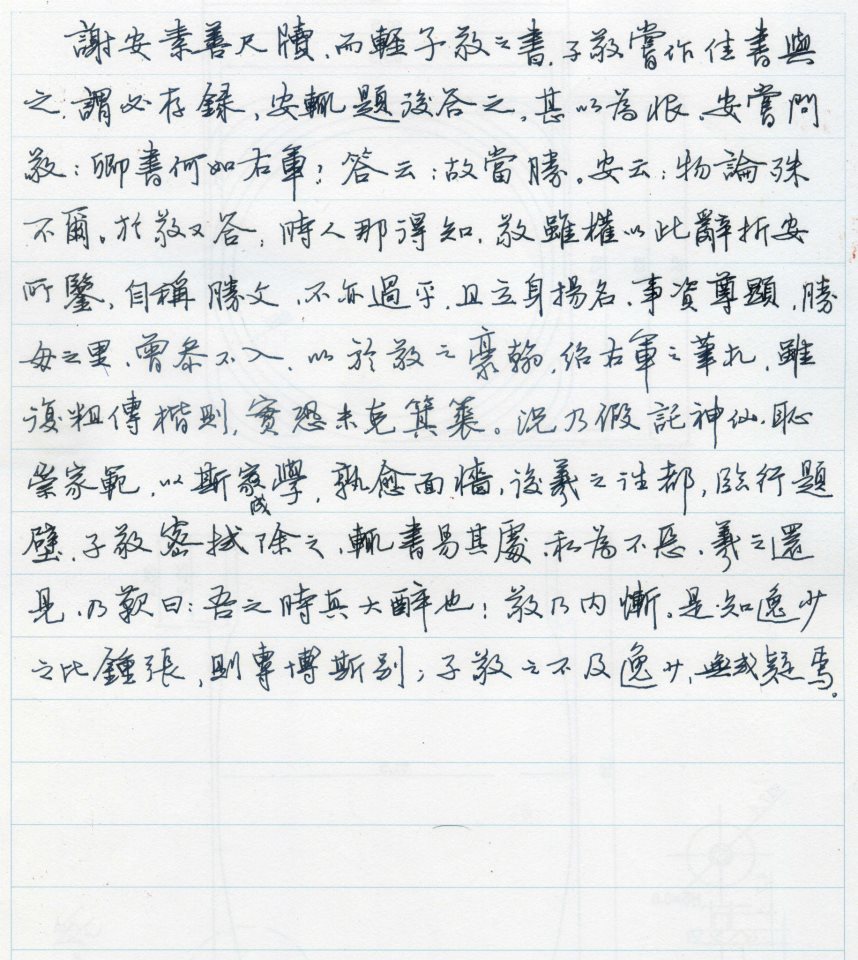 謝安素善尺牘,而輕子敬之書,子敬嘗作佳書與
之,謂必存錄,安輒題後答之,甚以為恨,安嘗問
敬:卿書何如右軍?答云:故當勝。安云:物論殊
不爾。於敬又答:時人那得知,敬雖權以此辭折安
所鑒,自稱勝父,不亦過乎,且立身揚名,事資尊顯,勝
母之里,曾參不入,以於敬之豪翰,紹右軍之筆札,雖
復粗傳楷則,實恐未克箕裘。況乃假託神仙,恥
崇家範,以斯成學,孰愈面牆,後羲之往都,臨行題
壁,子敬密拭除之,輒書易其處,私為不惡,羲之還
見,乃歎曰:吾之時真大醉也!敬乃內慚。是知逸少
之比鍾張,則專博斯別;子敬之不及逸少,無或疑焉。